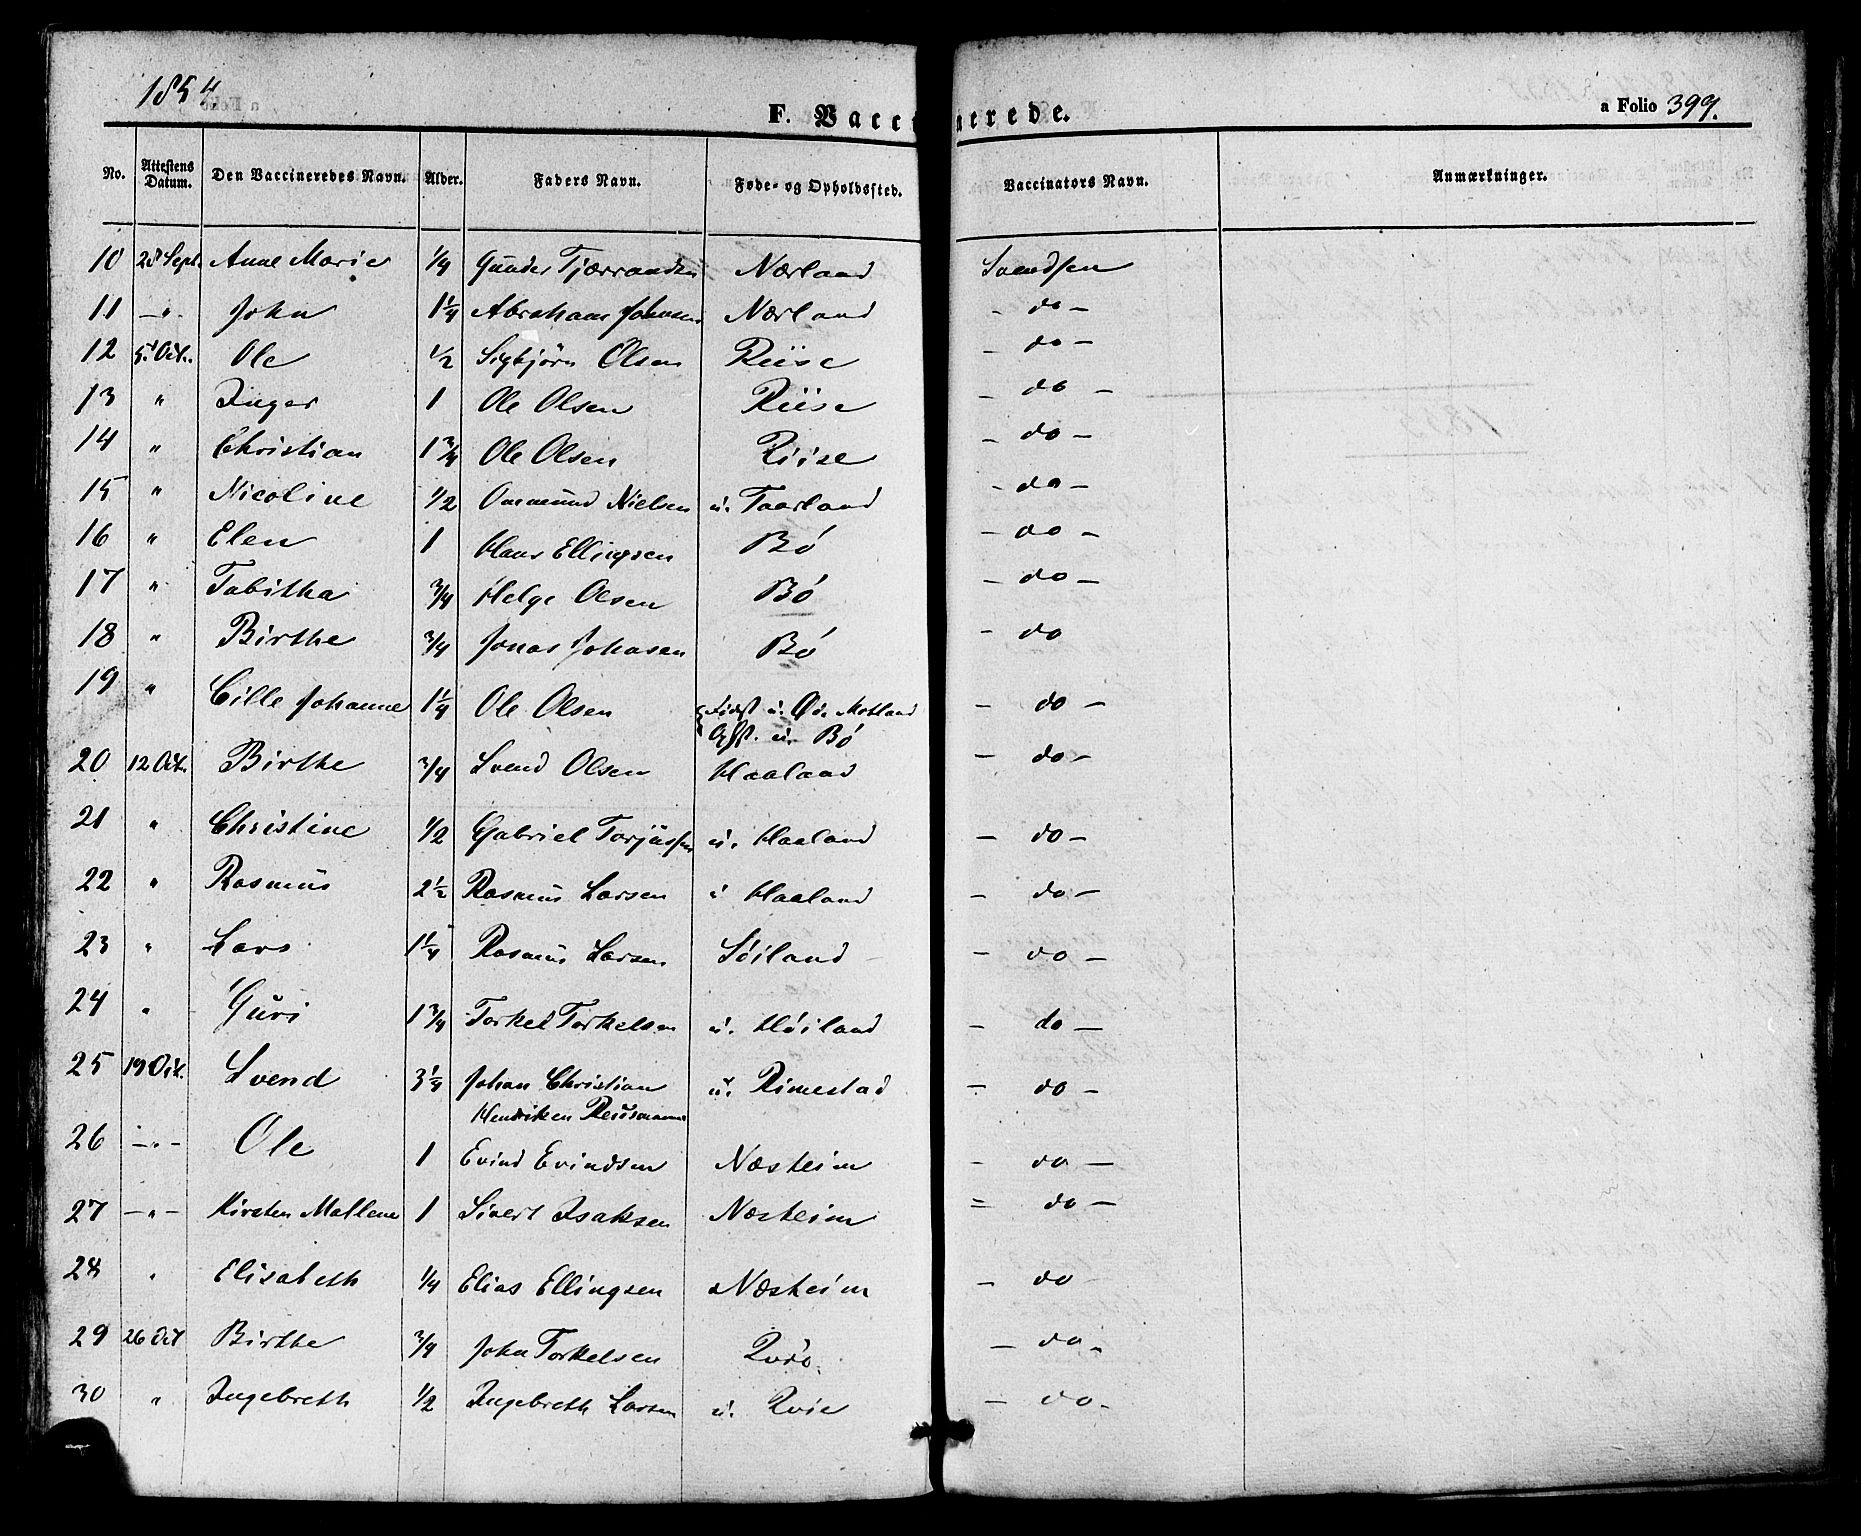 1854
F. Vaccinerede.
a Folio 399.
No. Attestens Datum. Den Vaccineredes Navn. Alder. Faders Navn. Føde- og Opholdssted. Vaccinators Navn. Anmærkninger.
10 28 Sept. Anne Marie 1/4 Gunder Tjærrandsen Nærland Svendsen
11 -"- John 1 1/4 Abraham Johnsen Nærland - do -
12 5t Oct. Ole 1/2 Sigbjørn Olsen Riise - do -
13 " Inger 1 Ole Olsen Riise - do -
14 " Christian 1 3/4 Ole Olsen Riise - do -
15 " Nicoline 1/2 Ommund Nielsen u. Taarland - do -
16 " Elen 1 Hans Ellingsen Bø - do -
17 " Tabitha 3/4 Helge Olsen Bø - do -
18 " Birthe 3/4 Jonas Johnsen Bø - do
19 " Cille Johanne 1 1/4 Ole Olsen Fødst u. Motland - do -
u. Bø
20 12 Oct. Birthe 3/4 Svend Olsen Haaland - do -
21 " Christine 1/2 Gabriel Torjussen u. Haaland - do -
22 " Rasmus 2 1/2 Rasmus Larsen u Haaland - do -
23 " Lars 1 1/4 Rasmus Larsen Søiland - do -
24 " Guri 1 3/4 Torkel Torkelsen u. Høiland - do -
25 19 Oct. Svend 3 1/4 Johan Christian u. Rimestad - do -
Henriken
26 -"- Ole 1 Evind Evindsen Næsheim - do -
27 -"- Kirsten Mallene 1 Sivert Isaksen Næsheim = do -
28 " Elisabeth 1/4 Elias Ellingsen Næsheim - do
29 26 Oct Birthe 3/4 John Torkelsen - do -
30 " Ingebreth 1/2 Ingebreth Larsen u. Qvie - do -